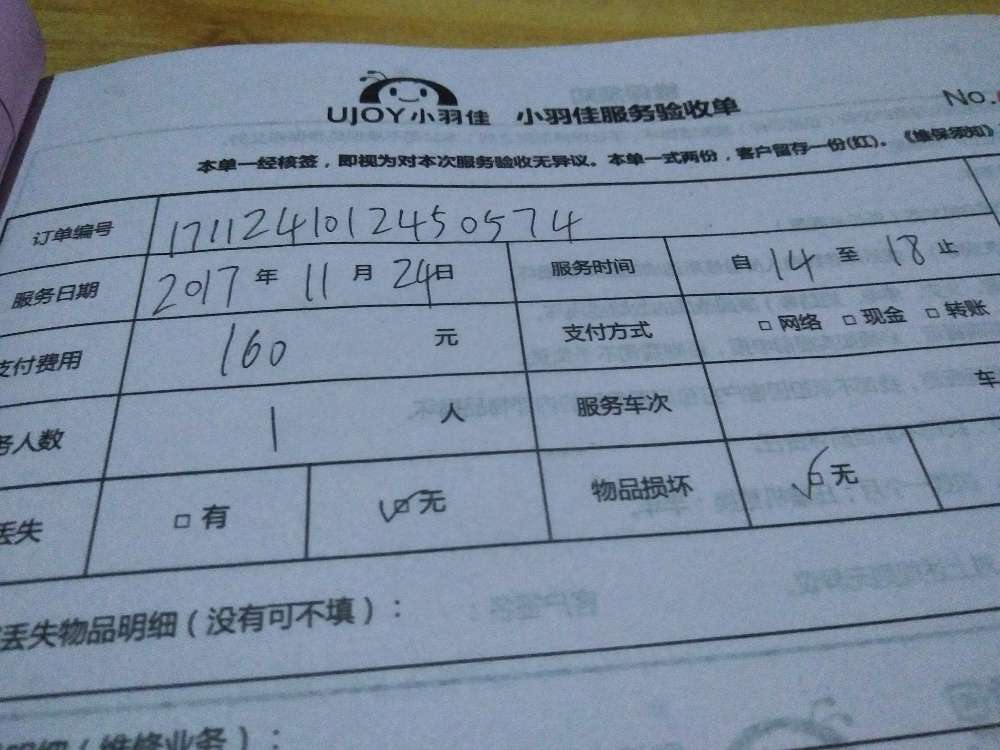 UJOY小羽佳 小羽佳服务验收单 No.
本单一经核签，即视为对本次服务验收无异议。本单一式两份，客户留存一份(红)。《维保须知》
订单编号 17112410124450574
服务日期 2017 年 11 月 24日 服务时间 自 14 至 18 止
支付费用 160 元 支付方式 □ 网络 □ 现金 □ 转账
务人数 1 人 服务车次 车
丢失 □ 有 ☑ 无 物品损坏 ☑ 无
丢失物品明细（没有可不填）：
明细（维修业务）：